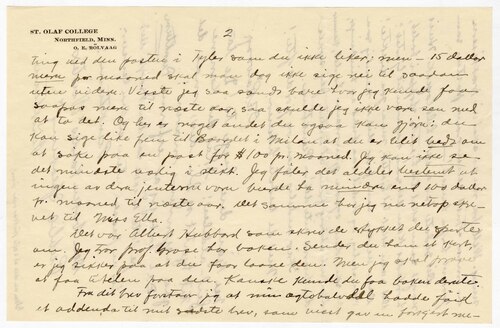 ST. OLAF COLLEGE
NORTHFIELD, MINN.
O. E. ROLVAAG
2
ting ved den posten i Tyler som du ikke liker; men — 15 dollar
mere pr maaned skal man dog ikke sige nei til saadan
uten videre. Visste jeg saa sandt bare hvor jeg kunde faa
saapas mere til næste aar, saa skulde jeg ikke være sen med
at ta det. Og her er noget andet du ogsaa kan gjøre: du
kan sige like frem til Boardet i Milan at du er blit bedt om
at søke paa en post for $100 pr. maaned. Jeg kan ikke se
det mindste uærlig i slikt. Jeg føler det aldeles bestemt at
ingen av dere jenterne burde ha mindre end 100 dollar
pr. maaned til næste aar. Det samme har jeg nu netop skre-
vet til Miss Ella.
Det var Albert Hubbard som skrev de stykket du spørte
om. Jeg tror prof. Grose har boken. Sender du ham et kort,
er jeg sikker paa at du faar laane den. Men jeg skal prøve
at faa tittelen paa den. Kanske kunde du faa boken
Fra dit brev forstaar jeg at min hadde føiet
et addenda til mit sidste brev, som visst gav en